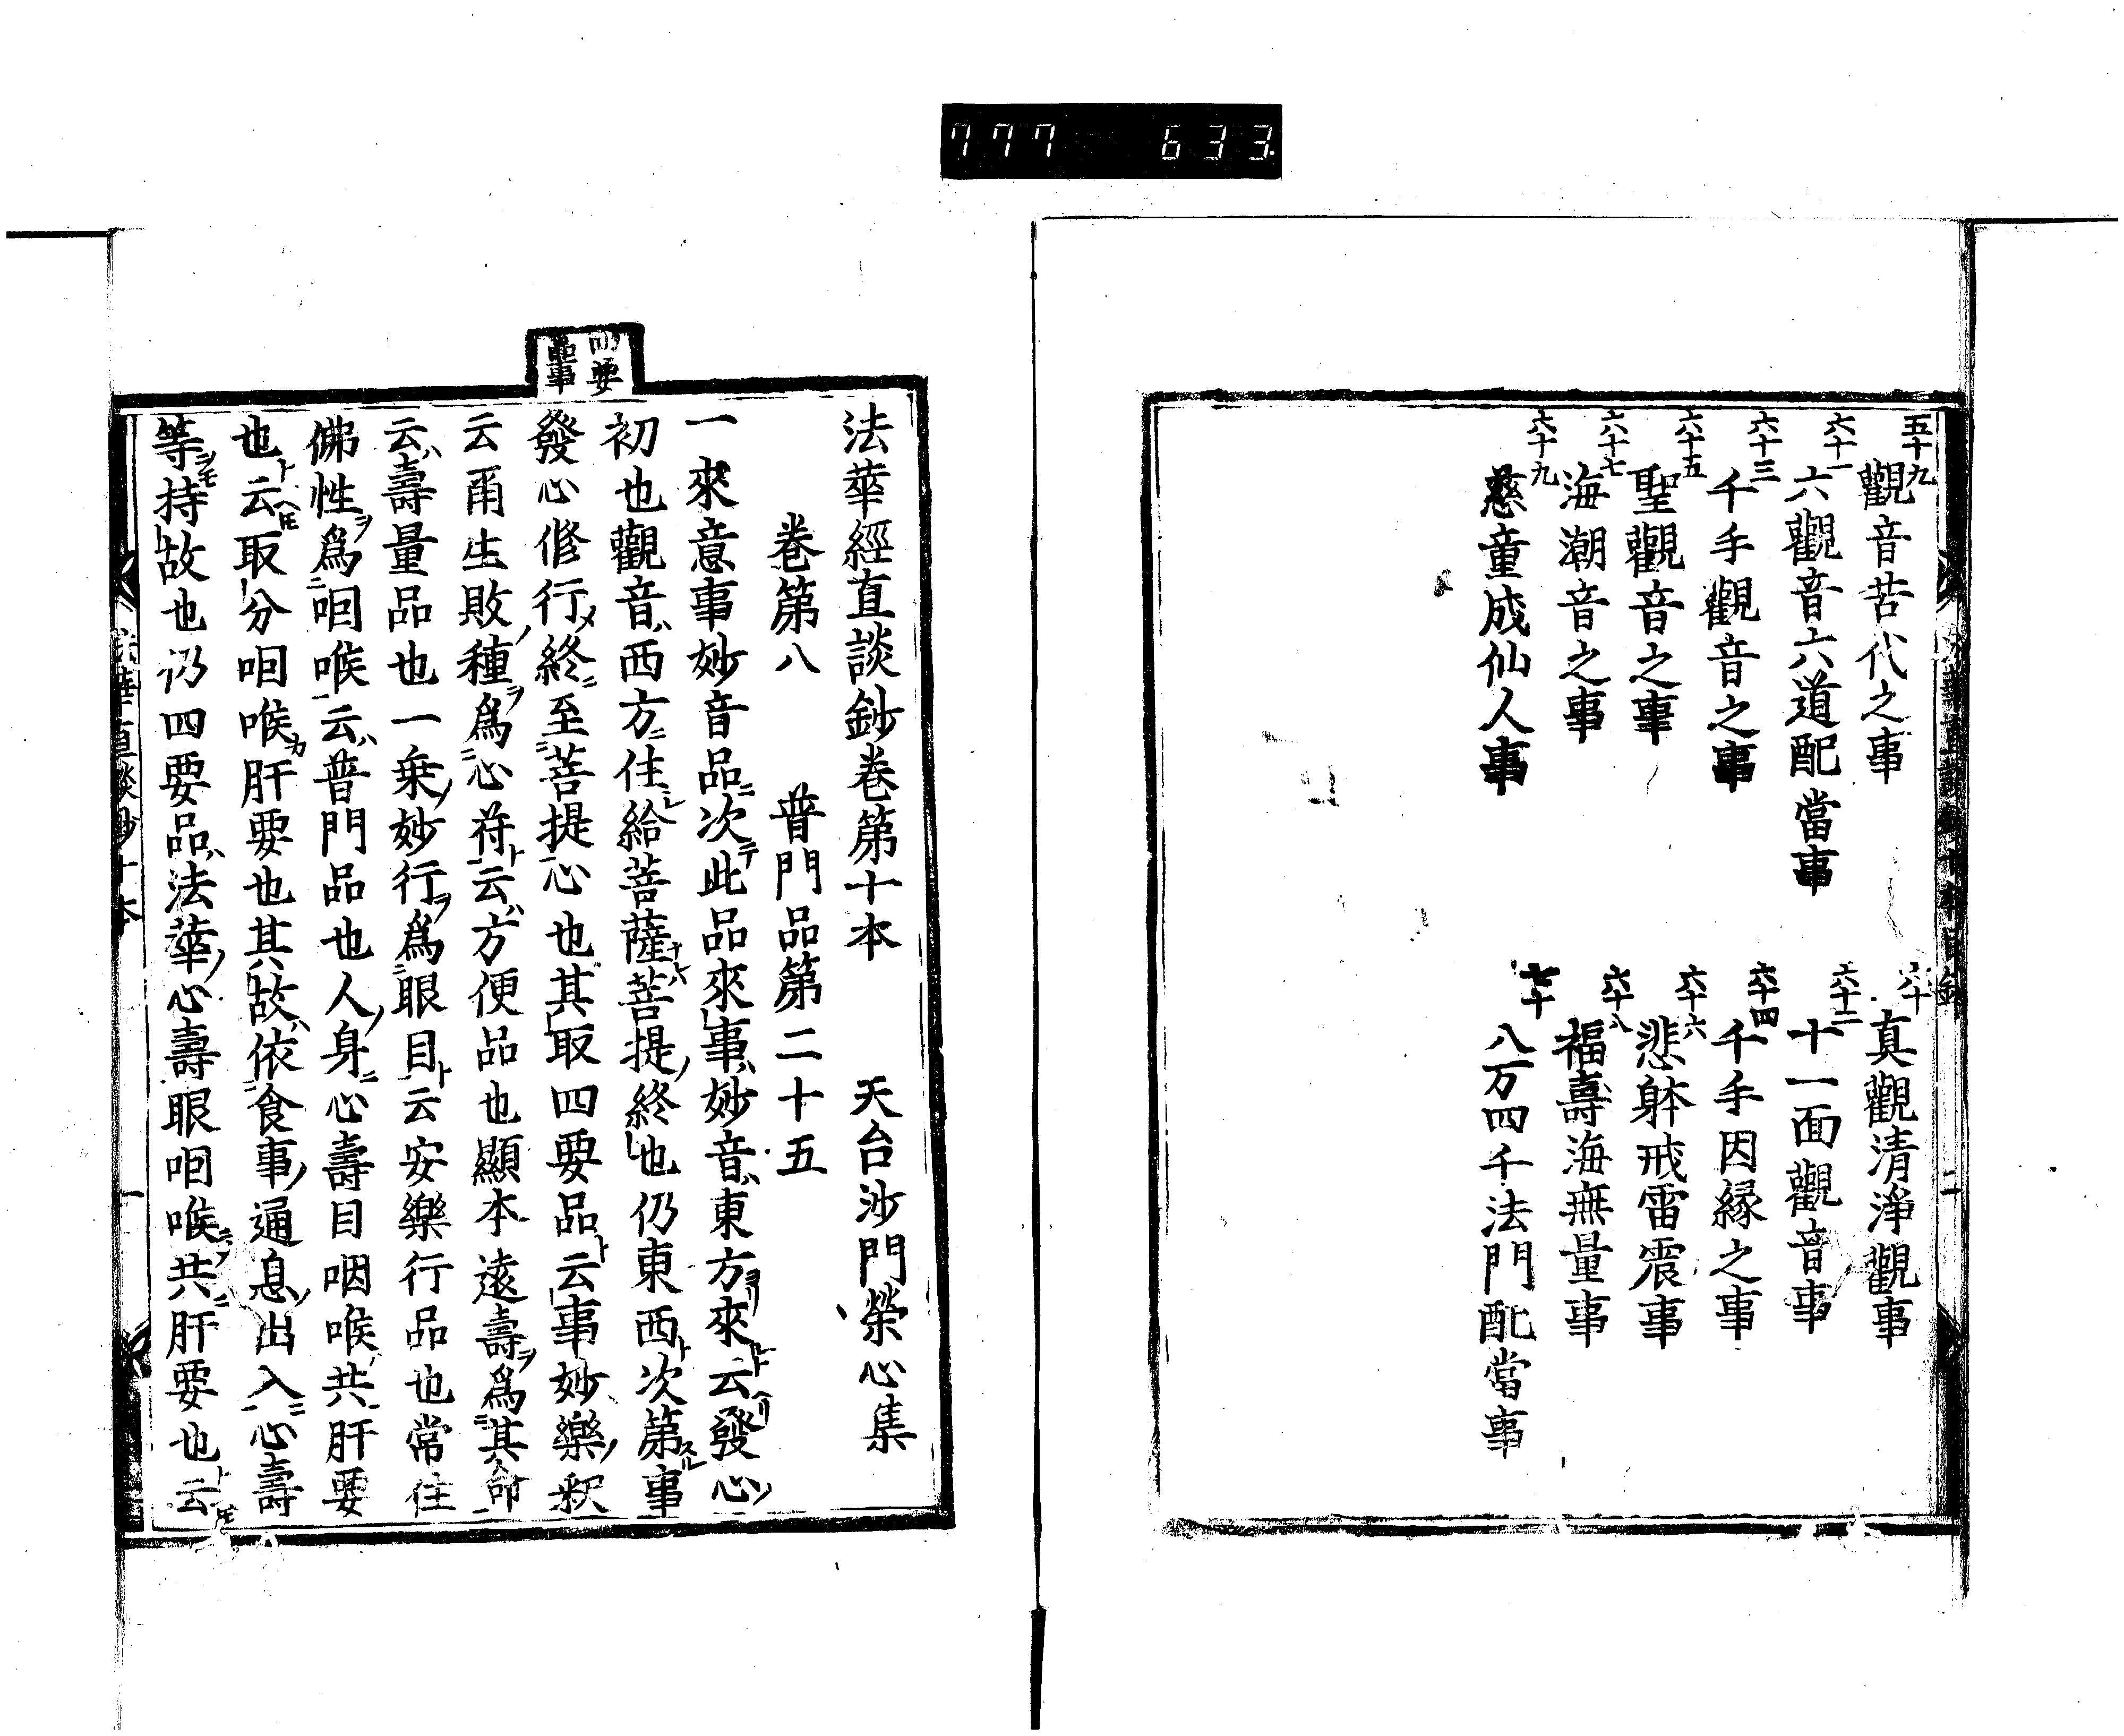 777 633
五十九 觀音苦代之事
六十 真觀清淨觀事
六十一 六觀音六道配當事
六十二 十一面觀音事
六十三 千手觀音之事
六十四 千手因縁之事
六十五 聖觀音之事
六十六 悲躰戒雷震事
六十七 海潮音之事
六十八 福壽海無量事
六十九 慈童成仙人事
七十 八万四千法門配當事
法華經直談鈔卷第十本 天台沙門榮心集
卷第八 普門品第二十五
一來意事妙音品ニ次ニテ此品來事ハ妙音ハ東方ヨリ來ト云ヘリ發心ノ
初也觀音ハ西方ニ住シ給菩薩ナレハ菩提ノ終也仍東西ト次第スル事
發心修行〆終ニ至菩提心也其取四要品ト云事妙樂ノ釈
云甬生敗種ヲ爲心符ト云ハ方便品也顯本遠壽ヲ爲其命
云ハ壽量品也一乗ノ妙行ヲ爲眼目ト云安樂行品也常住
佛性ヲ爲咽喉云ハ普門品也人ノ身ニ心壽目咽喉共肝要
也ト云ヘ𪜈取分咽喉カ肝要也其故ハ依食事ノ通息ノ出入ニ心壽
等ヲモ持故也仍四要品ハ法華ノ心壽眼咽喉ニテ共ニ肝要也ト云𪜈
四要品事
法華直談鈔十本 一